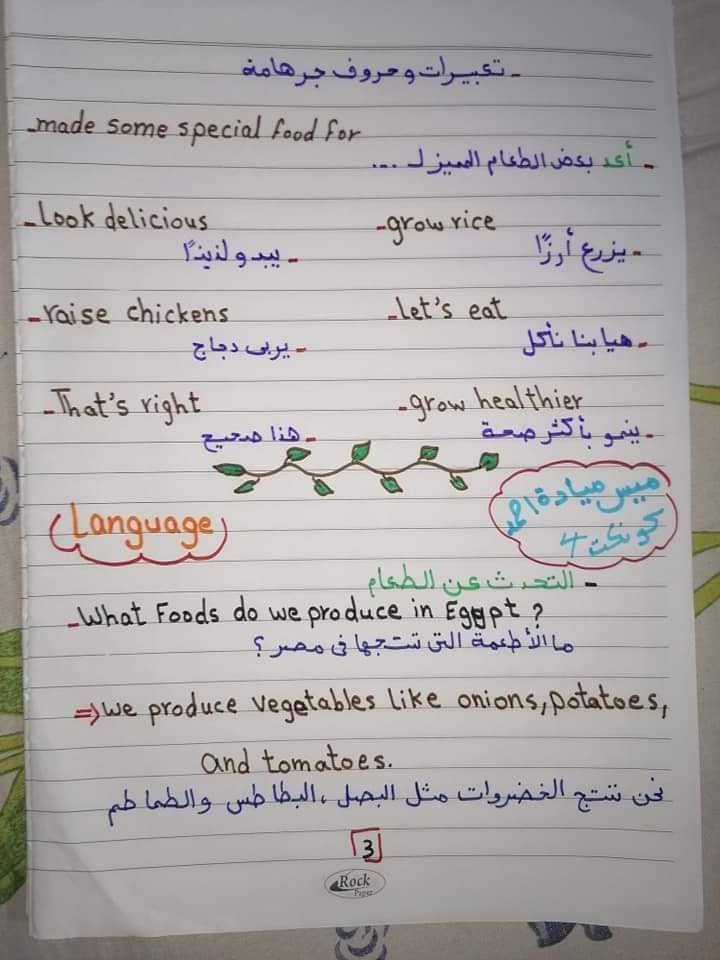 - تعبيرات وحروف جر هامة
- made some special food for
- أعد بعض الطعام المميز لـ ....
- Look delicious - grow rice
- يبدو لذيذًا - يزرع أرزًا
- raise chickens - Let's eat
- يربى دجاج - هيا بنا نأكل
- That's right - grow healthier
- هذا صحيح - ينمو بأكثر صحة
ميس ميادة احمد
كونكت 4
Language
- التحدث عن الطعام
- What Foods do we produce in Egypt ?
ما الأطعمة التى ننتجها فى مصر ؟
⇒ we produce vegetables like onions, potatoes,
and tomatoes.
نحن ننتج الخضروات مثل البصل ، البطاطس والطماطم
3
Rock
Paper